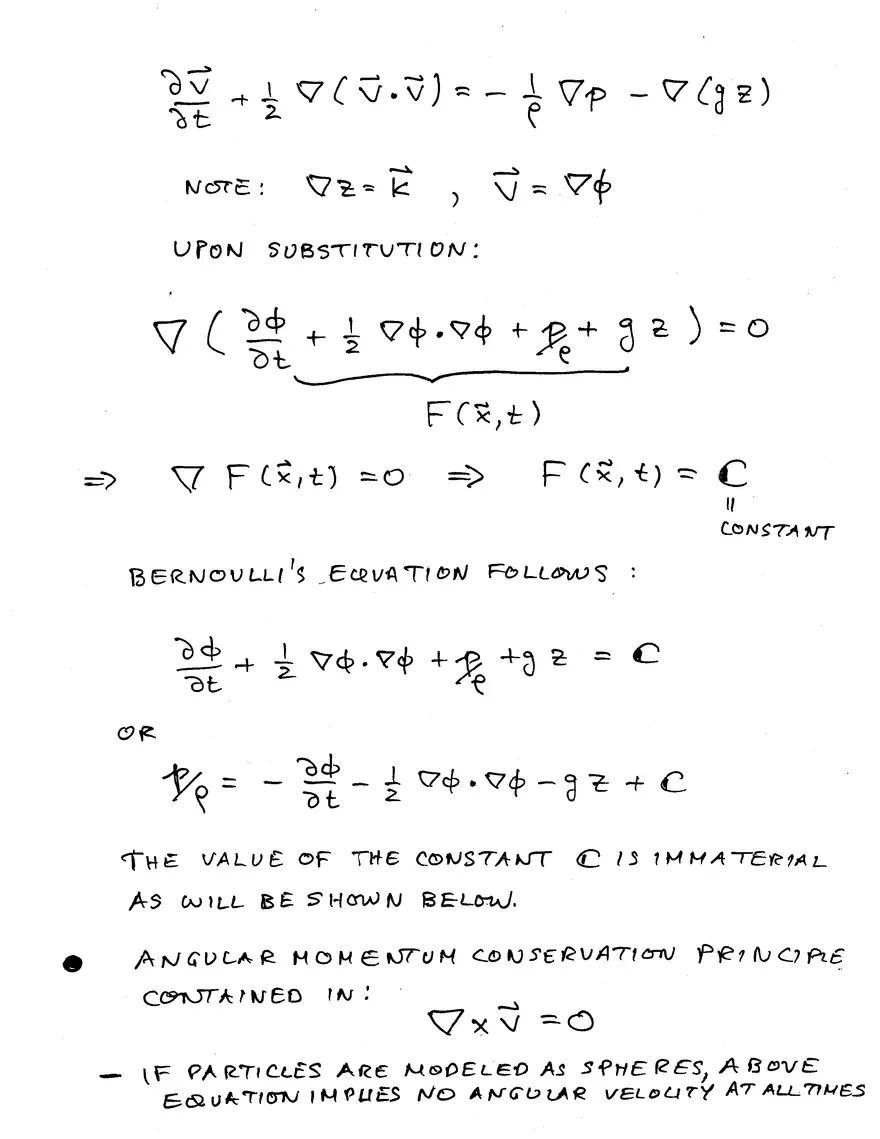 ∂v⃗/∂t + 1/2 ∇(v⃗·v⃗) = - 1/ρ ∇p - ∇(gz)
NOTE: ∇z = k⃗ , v⃗ = ∇ϕ
UPON SUBSTITUTION:
∇(∂ϕ/∂t + 1/2 ∇ϕ·∇ϕ + p/ρ + gz) = 0
F(x⃗,t)
⇒ ∇F(x⃗,t) = 0 ⇒ F(x⃗,t) = C
=
CONSTANT
BERNOULLI'S EQUATION FOLLOWS :
∂ϕ/∂t + 1/2 ∇ϕ·∇ϕ + p/ρ + gz = C
OR
p/ρ = - ∂ϕ/∂t - 1/2 ∇ϕ·∇ϕ - gz + C
THE VALUE OF THE CONSTANT C IS IMMATERIAL
AS WILL BE SHOWN BELOW.
● ANGULAR MOMENTUM CONSERVATION PRINCIPLE
CONTAINED IN :
∇×v⃗ = 0
— IF PARTICLES ARE MODELED AS SPHERES, ABOVE
EQUATION IMPLIES NO ANGULAR VELOCITY AT ALL TIMES